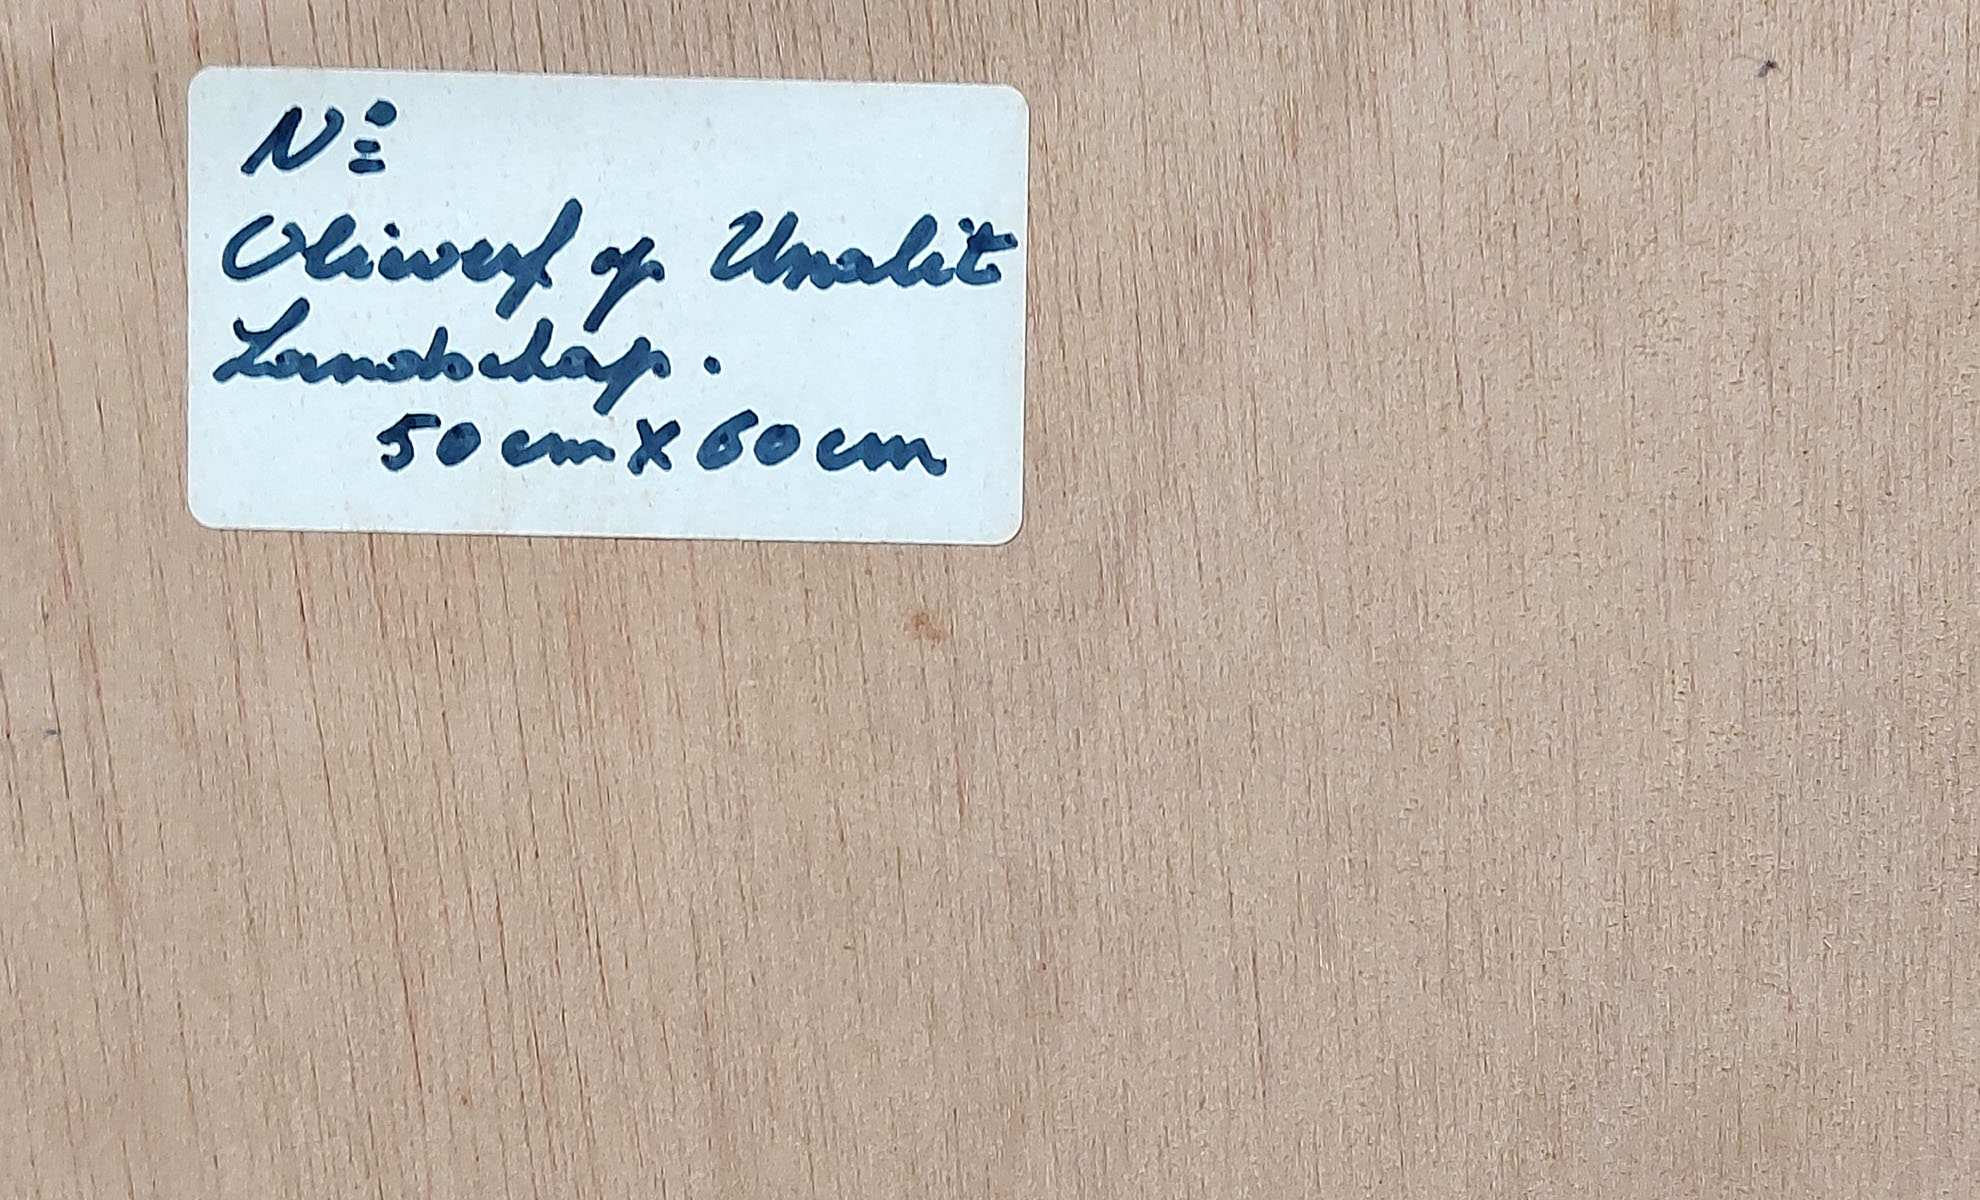 Nº
Olieverf op Unalit
Landschap.
50 cm X 60 cm